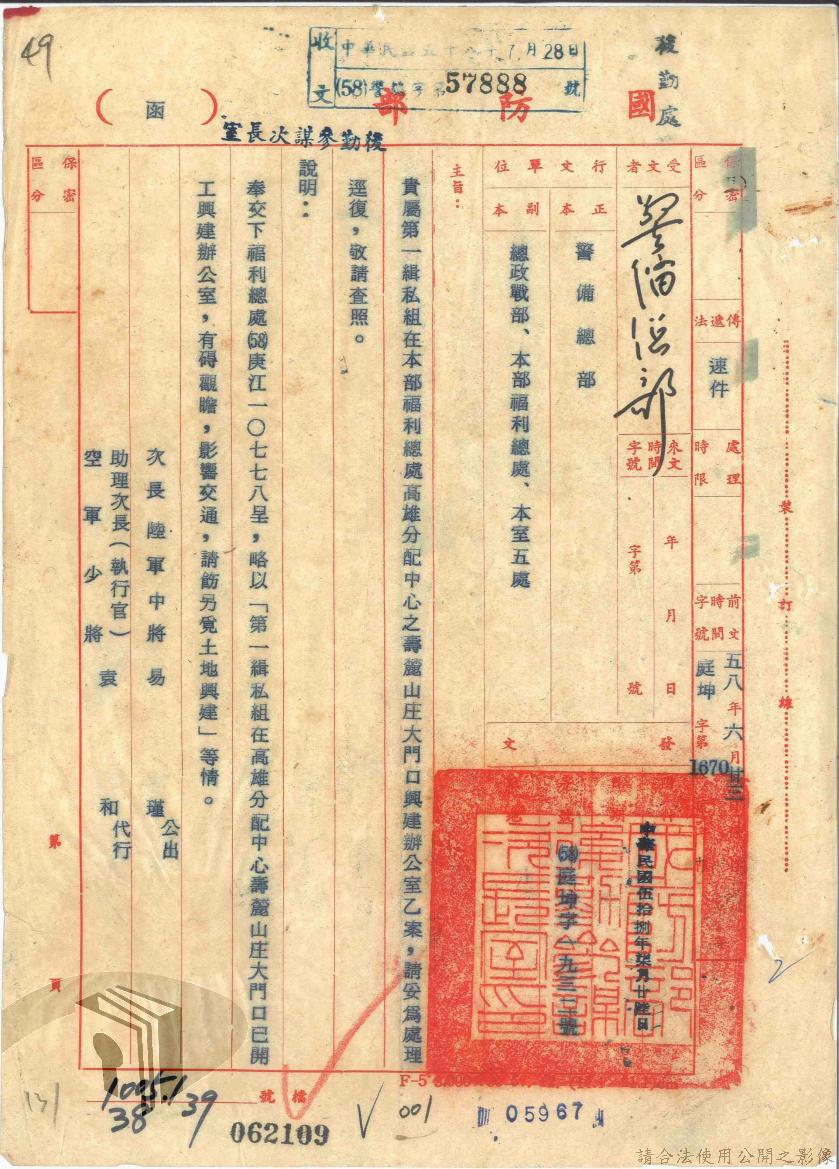 49
收文
中華民國五十八年7月28日
(58)警 字第57888號
後勤處
國防部
後勤參謀次長室
(函)
保密
區分
傳遞法
速件
處理
時限
前文
時間
字號
五八年六月廿三
庭坤字第1670
受文者
警備總部
來文
時間
字號
年月日
字第號
行文單位
正本
警備總部
副本
總政戰部、本部福利總處、本室五處
發文
中華民國伍拾捌年柒月廿陸日
(58)庭坤字一九三二號
主旨：
貴屬第一緝私組在本部福利總處高雄分配中心之壽麓山庄大門口興建辦公室乙案，請妥爲處理
逕復，敬請查照。
說明：
奉交下福利總處(58)庚江一〇七七八呈，略以「第一緝私組在高雄分配中心壽麓山庄大門口已開
工興建辦公室，有碍觀瞻，影響交通，請飭另覓土地興建」等情。
次長陸軍中將易瑾公出
助理次長(執行官)
空軍少將袁和代行
保密
區分
第頁
裝訂線
2
檔號
1005.1
38 39
062109
V 001
05967
131
請合法使用公開之影像